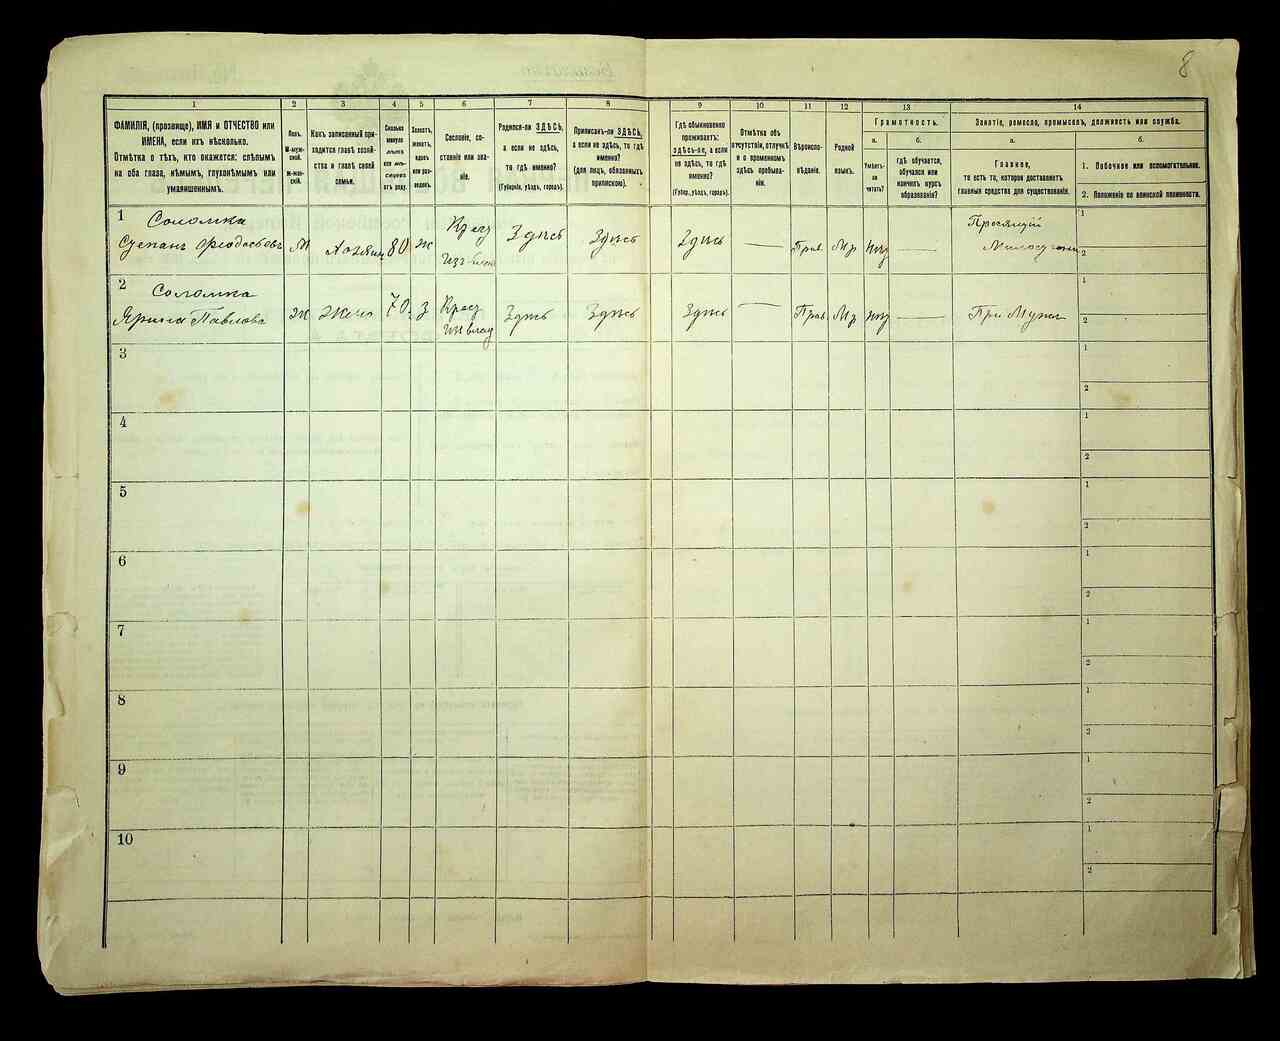 8
1
2
3
4
5
6
7
8
9
10
11
12
13
14
ФАМИЛІЯ, (прозвище), ИМЯ и ОТЧЕСТВО или
ИМЕНА, если ихъ нѣсколько.
Отмѣтка о тѣхъ, кто окажется: слѣпымъ
на оба глаза, нѣмымъ, глухонѣмымъ или
умалишеннымъ.
Полъ.
М-муж-
ской.
Ж-жен-
скій.
Какъ записанный при-
ходится главѣ хозяй-
ства и главѣ своей
семьи.
Сколько
минуло
лѣтъ
или мѣ-
сяцевъ
отъ роду.
Холостъ,
женатъ,
вдовъ
или раз-
веденъ.
Сословіе, со-
стояніе или зва-
ніе.
Родился-ли ЗДѢСЬ,
а если не здѣсь,
то гдѣ именно?
(Губернія, уѣздъ, городъ).
Приписанъ-ли ЗДѢСЬ,
а если не здѣсь, то гдѣ
именно?
(для лицъ, обязанныхъ
припискою).
Гдѣ обыкновенно
проживаетъ:
здѣсь-ли, а если
не здѣсь, то гдѣ
именно?
(Губер., уѣздъ, городъ).
Отмѣтка объ
отсутствіи, отлучкѣ
и о временномъ
здѣсь пребыва-
ніи.
Вѣроиспо-
вѣданіе.
Родной
языкъ.
Грамотность.
а.
б.
Умѣетъ-
ли
читать?
Гдѣ обучается,
обучался или
кончилъ курсъ
образованія?
Занятіе, ремесло, промыселъ, должность или служба.
а.
б.
Главное,
то есть то, которое доставляетъ
главныя средства для существованія.
1. Побочное или вспомогательное.
2. Положеніе по воинской повинности.
1
Соломка
Степанъ Феодосьевъ
М
Хозяин
80
ж
Крес
Здѣсь
Здѣсь
Здѣсь
—
Прав.
Мр
—
Просящій
1
2
2
Соломка
Ярина Павлова
ж
Жена
70.
З
Крес
Здѣсь
Здѣсь
Здѣсь
—
Прав.
Мр
—
При Мужи
1
2
3
1
2
4
1
2
5
1
2
6
1
2
7
1
2
8
1
2
9
1
2
10
1
2